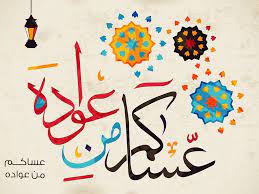 عساكم من عواده
عساكم
من عواده